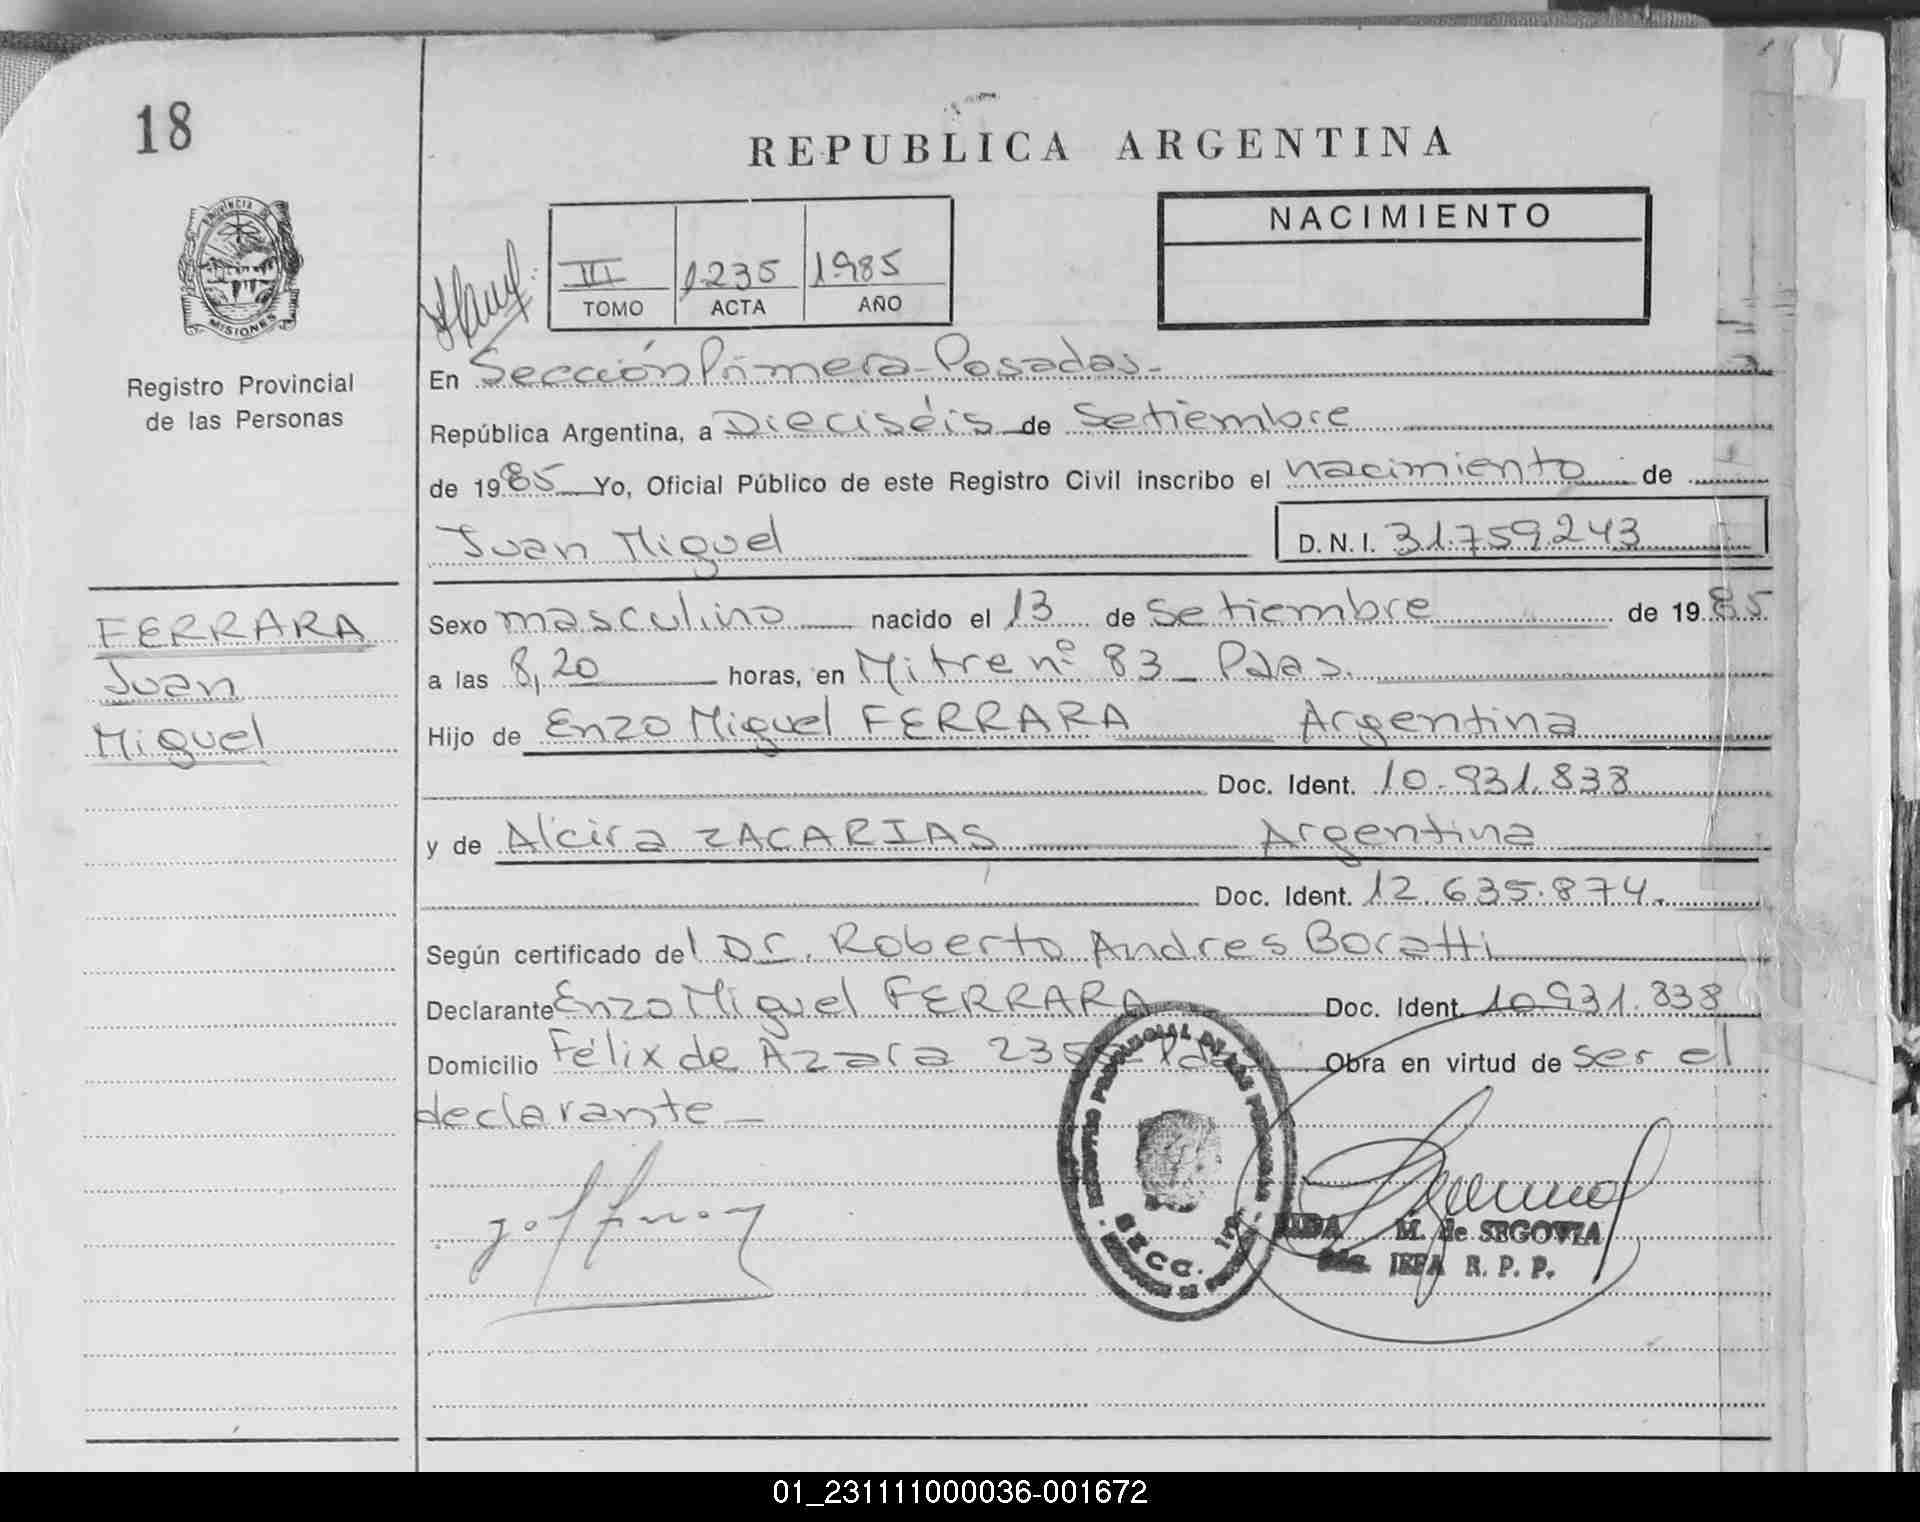 18
REPUBLICA ARGENTINA
PROVINCIA DE
MISIONES
Registro Provincial
de las Personas
III 1235 1985
TOMO ACTA AÑO
NACIMIENTO
En Sección Primera - Posadas.-
República Argentina, a Dieciséis de Setiembre
de 1985 Yo, Oficial Público de este Registro Civil inscribo el nacimiento de
Juan Miguel D. N. I. 31.759.243
FERRARA
Juan
Miguel
Sexo masculino nacido el 13 de Setiembre de 1985
a las 8,20 horas, en Mitre nº 83 _ Pdas.
Hijo de Enzo Miguel FERRARA Argentina
Doc. Ident. 10.931.838
y de Alcira ZACARIAS Argentina
Doc. Ident. 12.635.874.
Según certificado del Dr. Roberto Andres Boratti
Declarante Enzo Miguel FERRARA Doc. Ident. 10931.838
Domicilio Félix de Azara Obra en virtud de ser el
declarante _
REGISTRO PROVINCIAL DE LAS PERSONAS
SECC. 1ª
M. de SEGOVIA
R. P. P.
01_231111000036-001672